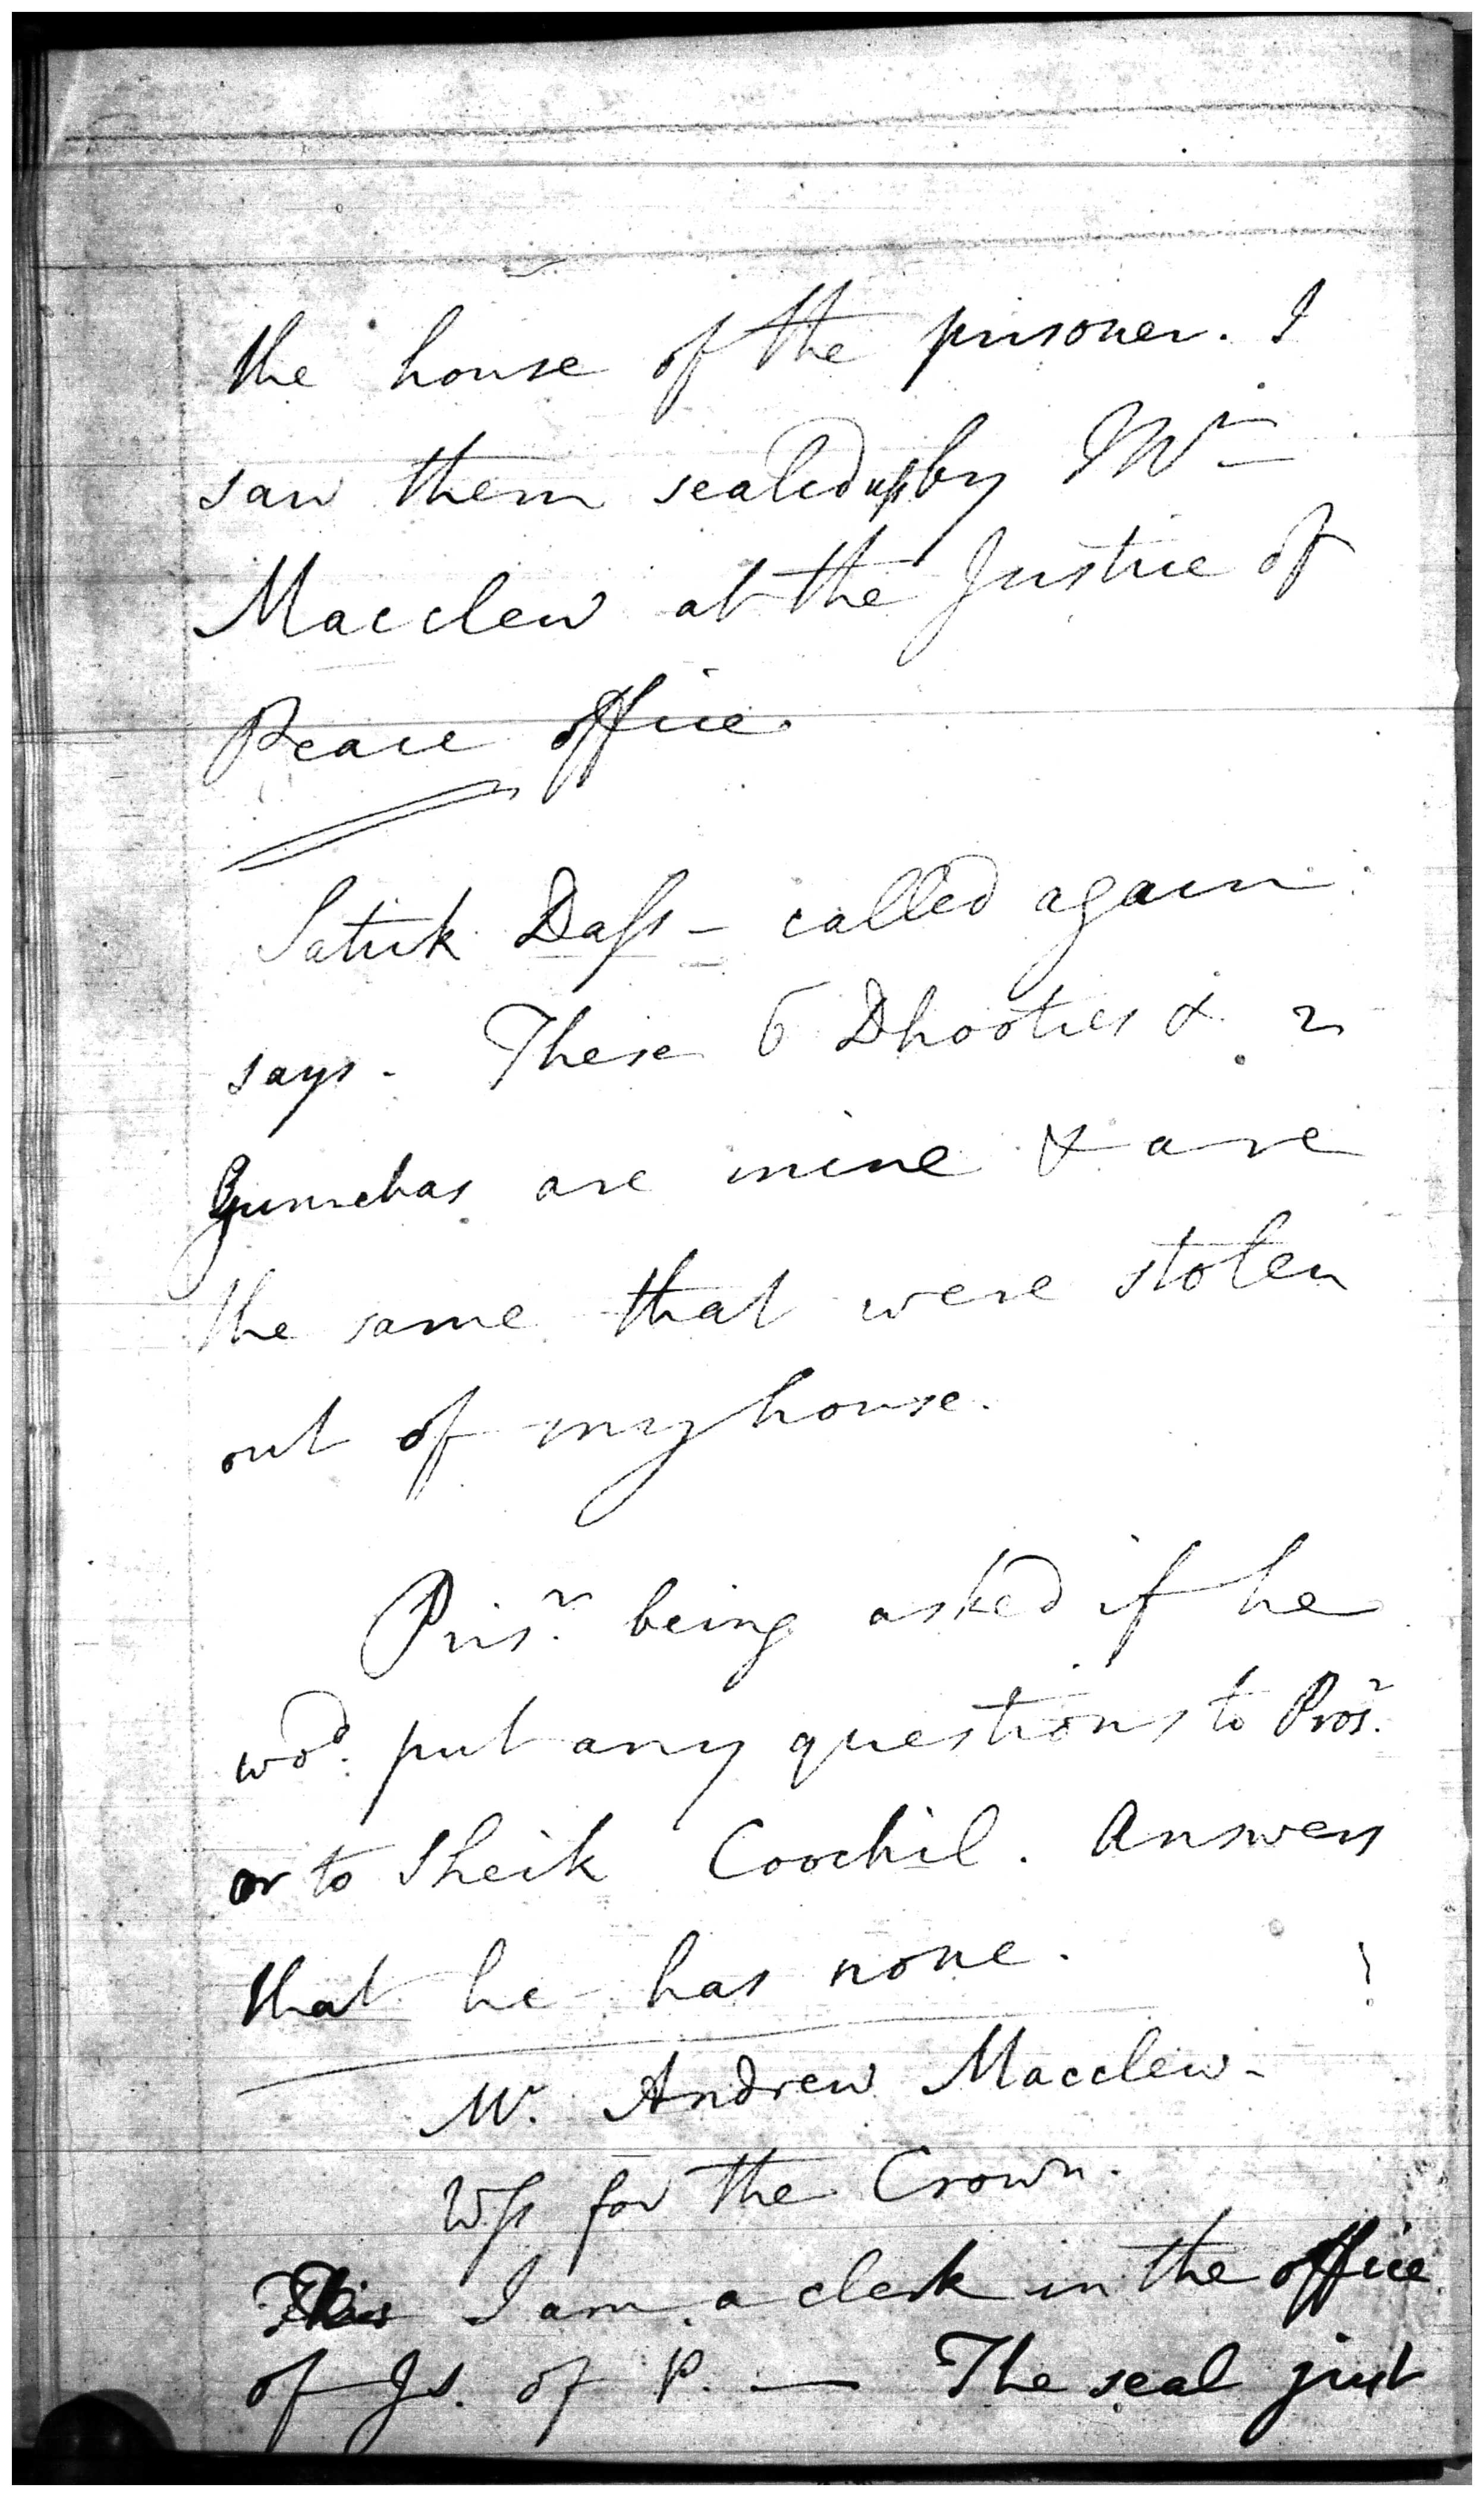 the house of the prisoner. I
saw them sealed up by Mr
Macclew at the Justice of
Peace office.
Satuk Dass - called again
says - These 6 Dhooties & 2
Gumchas are mine & are
the same that were stolen
out of my house.
Prisr. being asked if he
wod. put any questions to Prosr.
or to Sheik Coochil. Answers
that he has none.
Mr. Andrew Macclew -
Wss for the Crown.
I am a clerk in the office
of Js. of P. — The seal just